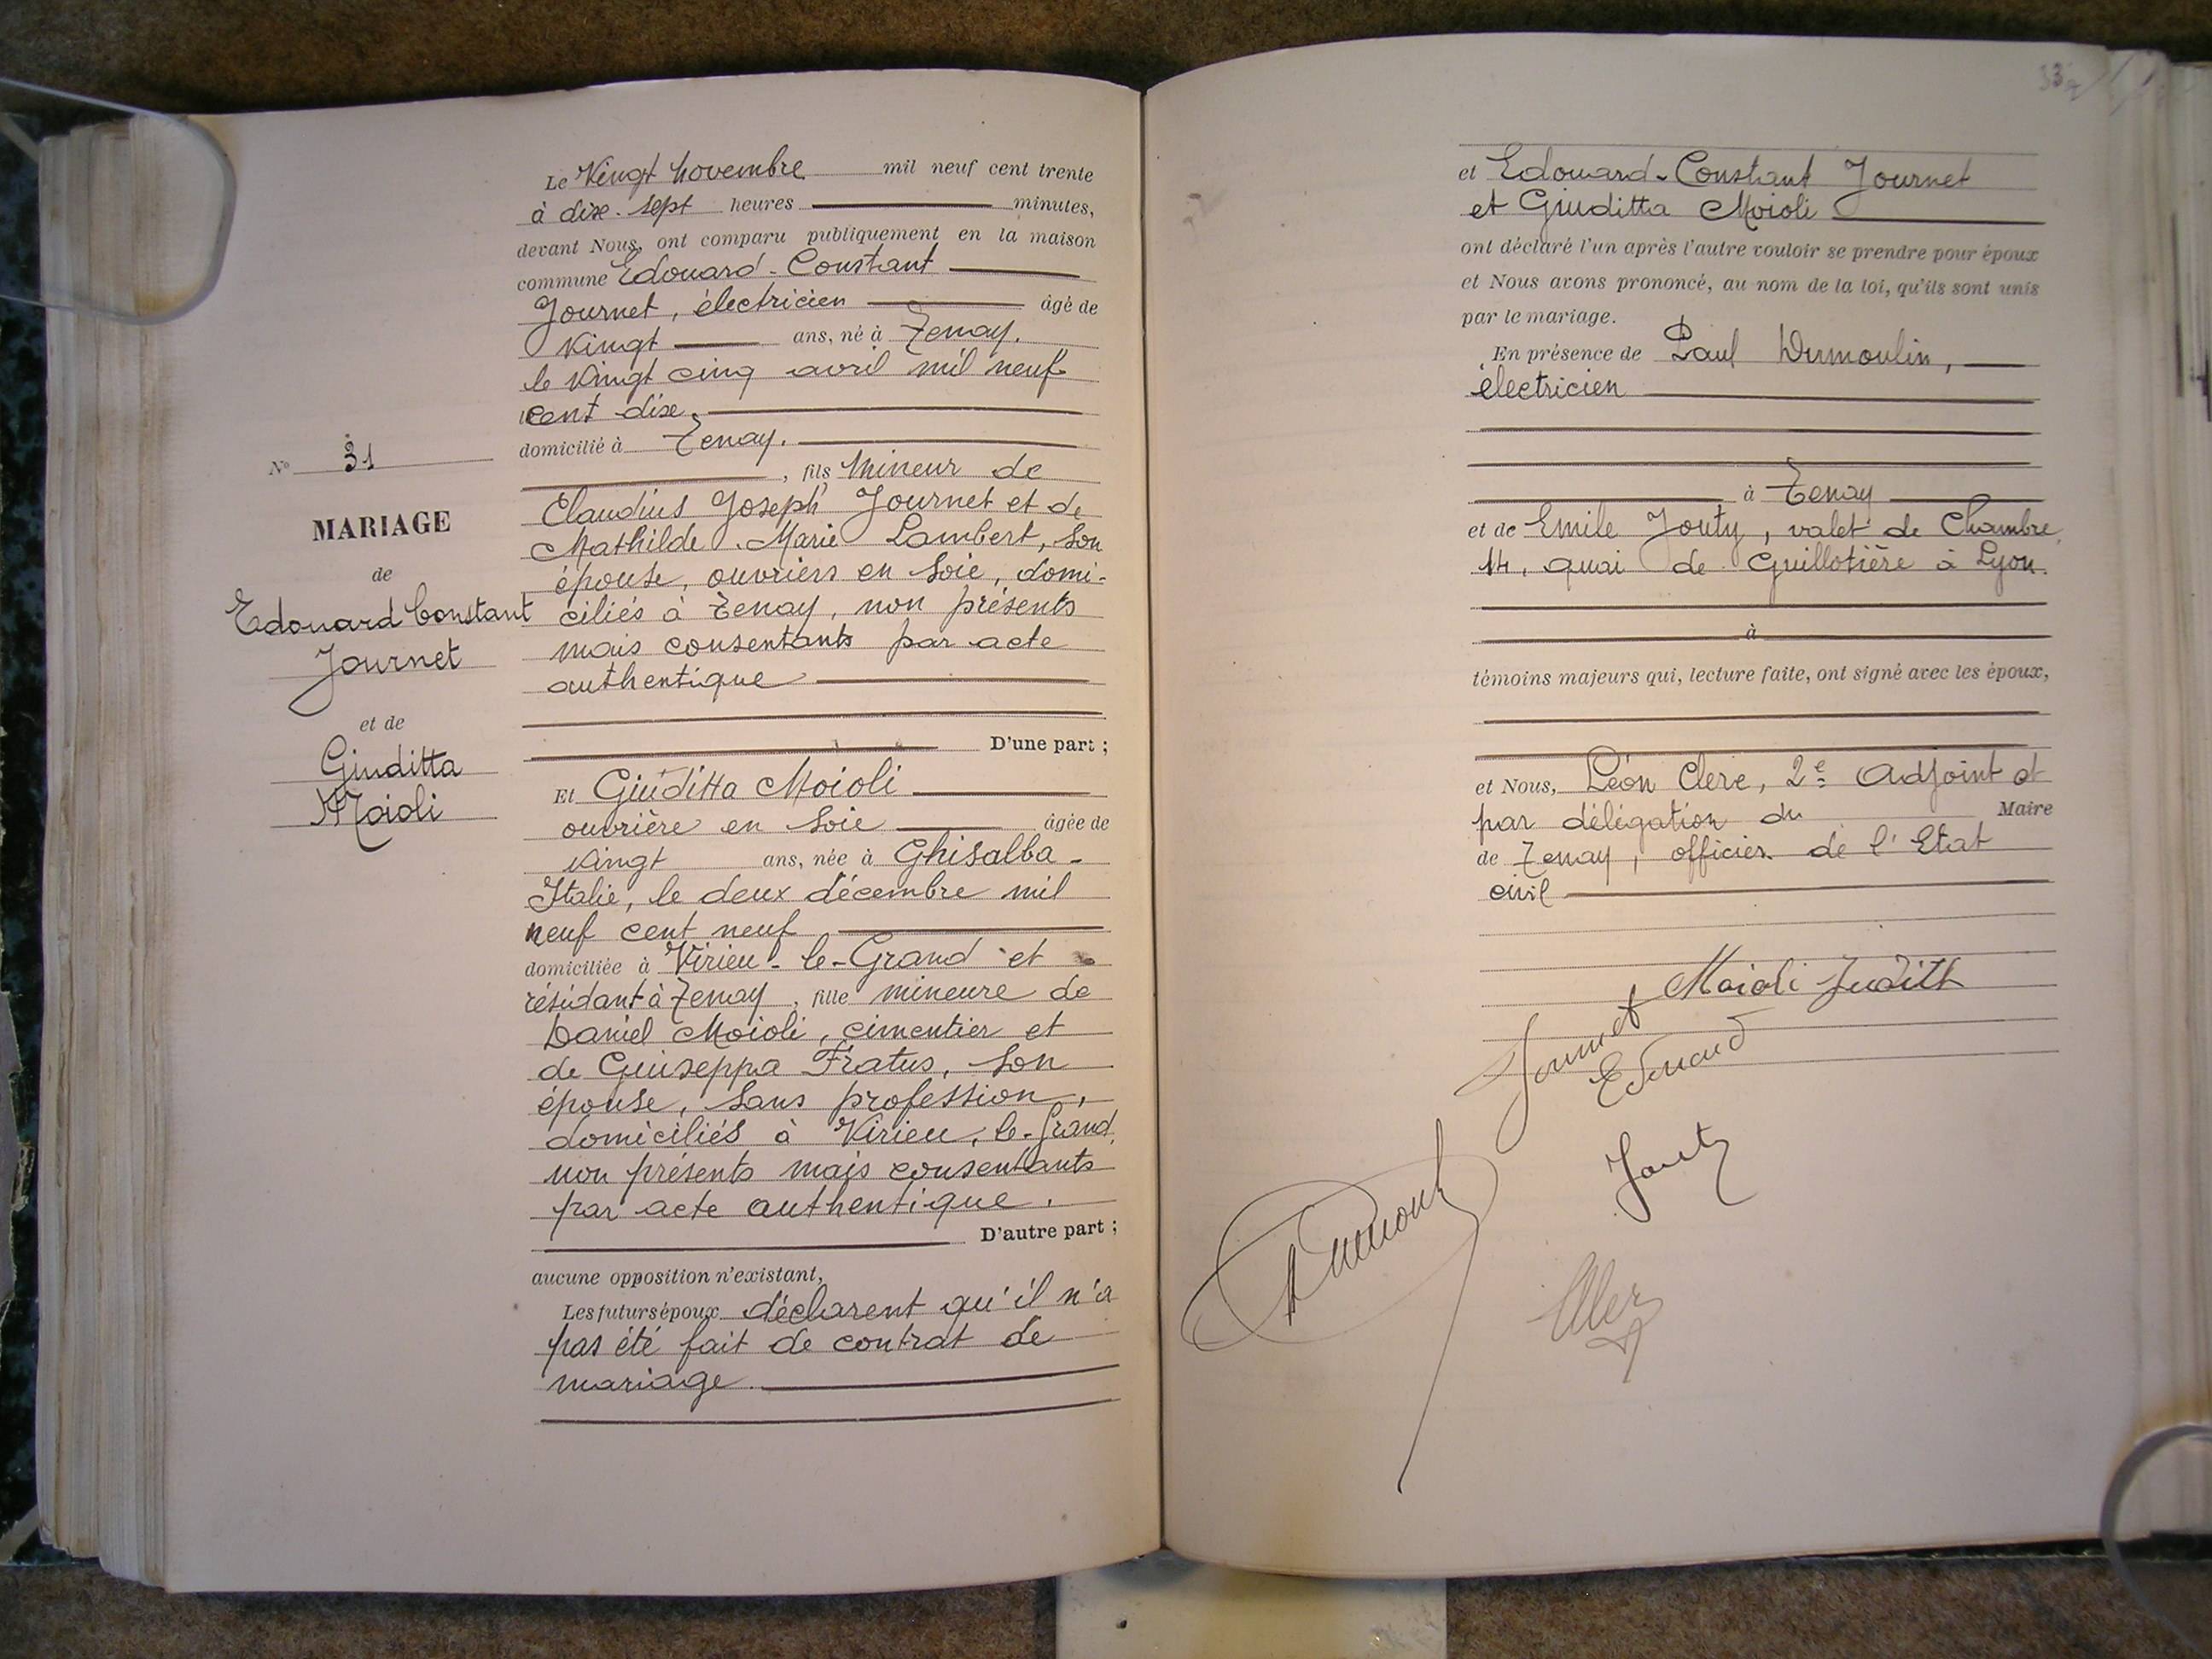 Nº 31
MARIAGE
de
Edouard Constant
Journet
et de
Giuditta
Moioli
Le Vingt novembre mil neuf cent trente
à dix-sept heures minutes,
devant Nous, ont comparu publiquement en la maison
commune Edouard-Constant
Journet, électricien âgé de
vingt ans, né à Tenay.
le vingt cinq avril mil neuf
cent dix.
domicilié à Tenay.
, fils mineur de
Claudius Joseph Journet et de
Mathilde Marie Lambert, son
épouse, ouvriers en soie, domi-
ciliés à Tenay, non présents
mais consentants par acte
authentique
D'une part ;
Et Giuditta Moioli
ouvrière en soie âgée de
vingt ans, née à Ghisalba -
Italie, le deux décembre mil
neuf cent neuf
domiciliée à Virieu-le-Grand et
résidant à Tenay, fille mineure de
Daniel Moioli, cimentier et
de Guiseppa Fratus, son
épouse, sans profession,
domiciliés à Virieu-le-Grand,
non présents mais consentants
par acte authentique.
D'autre part ;
aucune opposition n'existant,
Les futurs époux déclarent qu'il n'a
pas été fait de contrat de
mariage.
et Edouard-Constant Journet
et Giuditta Moioli
ont déclaré l'un après l'autre vouloir se prendre pour époux
et Nous avons prononcé, au nom de la loi, qu'ils sont unis
par le mariage.
En présence de Paul Dumoulin,
électricien
à Tenay
et de Emile Jouty, valet de Chambre,
14, quai de Guillotière à Lyon.
à
témoins majeurs qui, lecture faite, ont signé avec les époux,
et Nous, Léon Clerc, 2e Adjoint et
par délégation du Maire
de Tenay, officier de l'Etat
civil
Moioli Judith
Journet
Edouard
Jouty